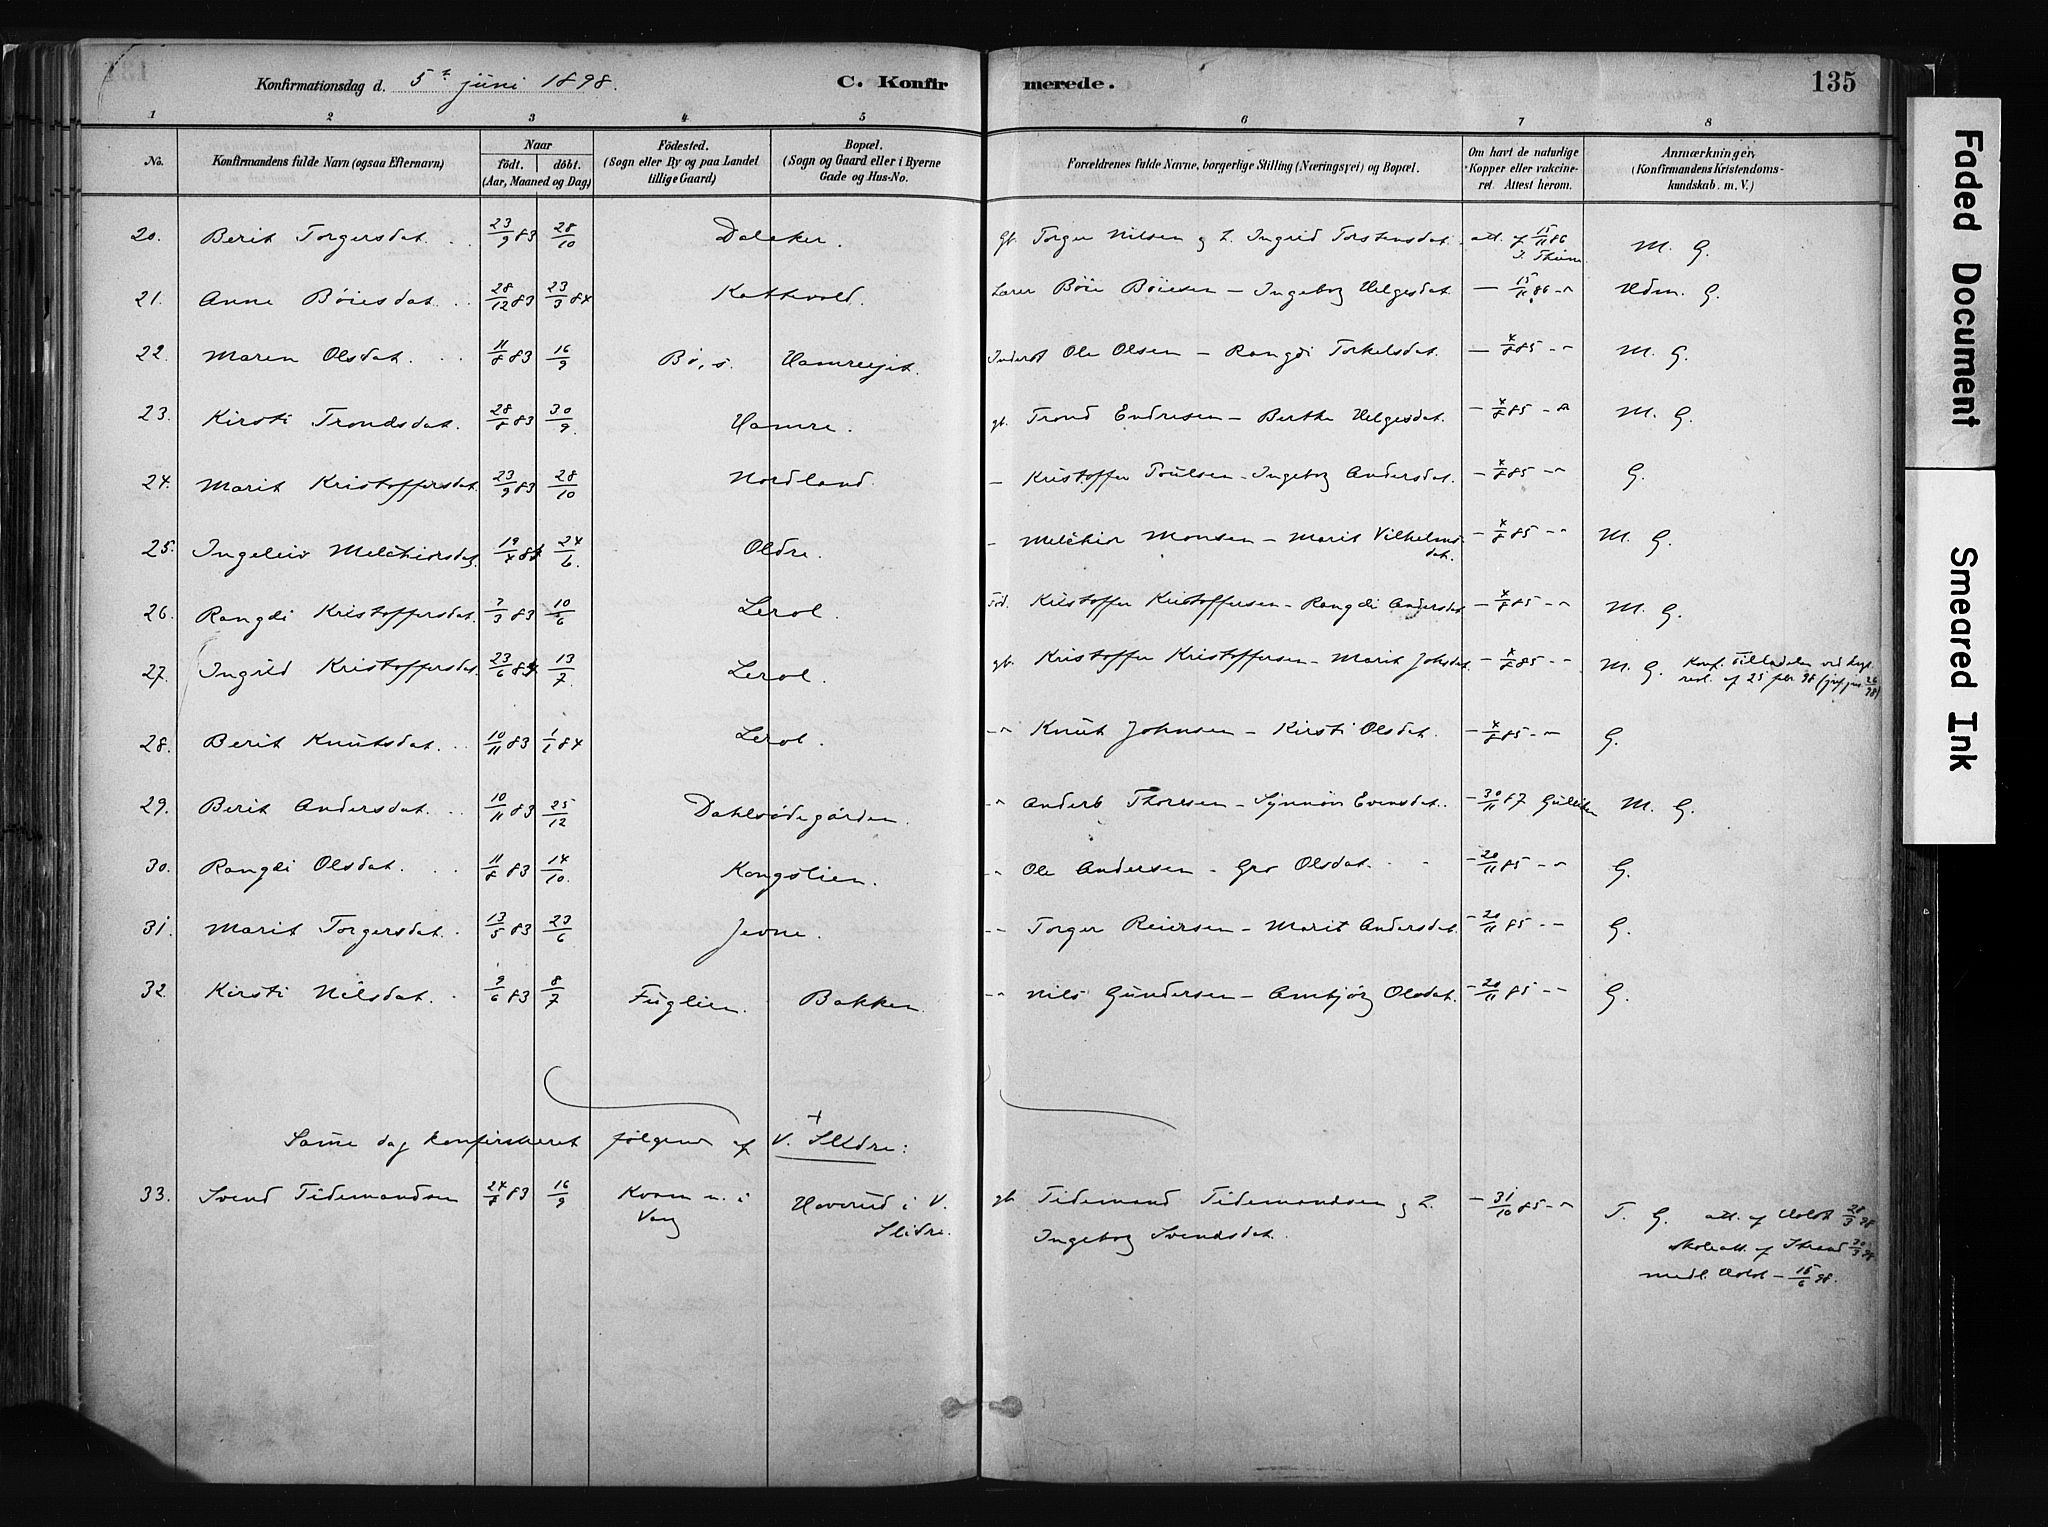 135
Konfirmationsdag d. 5te juni 1898.
C. Konfirmerede.
1 2 3 4 5 6 7 8
No.
Konfirmandens fulde Navn (ogsaa Efternavn)
Naar
födt. döbt.
(Aar, Maaned og Dag)
Födested.
(Sogn eller By og paa Landet
tillige Gaard)
Bopæl.
(Sogn og Gaard eller i Byerne
Gade og Hus-No.
Forældrenes fulde Navne, borgerlige Stilling (Næringsvei) og Bopæl.
Om havt de naturlige
Kopper eller vakcine-
ret. Attest herom.
Anmærkninger,
(Konfirmandens Kristendoms-
kundskab. m. V.)
20. Berit Torgersdat. 23/9 83 28/10 Dalaker. Gb. Torger Nilsen og h. Ingrid Torstensdat. att. af 15/11 86 M. G.
21. Anne Bøiesdat. 28/12 83 23/3 84 Kattevold. Lærer Bøie Bøiesen – Ingeborg Helgesdat. – 15/11 86 -"- Udm. G.
22. Maren Olsdat. 11/8 83 16/9 Bø, s. Hamreejet. Inderst Ole Olsen – Rangdi Torkelsdat. – 4/8 85 -"- M. G.
23. Kirsti Trondsdat. 28/8 83 30/9 Hamre. gb. Trond Endresen – Berthe Helgesdat. – 4/8 85 -"- M. G.
24. Marit Kristoffersdat. 23/9 83 28/10 Nordland. – Kristoffer Poulsen – Ingeborg Andersdat. – 4/8 85 -"- G.
25. Ingeleiv Melchiorsdat. 19/4 84 24/6 Oldre. – Melchior Monsen – Marit Vilhelmsdat. – 4/8 85 -"- M. G.
26. Rangdi Kristoffersdat. 7/3 83 10/6 Lerol. Kristoffer Kristoffersen – Rangdi Andersdat – 4/8 85 -"- M. G.
27. Ingrid Kristoffersdat. 23/6 84 13/7 Lerol. gb. Kristoffer Kristoffersen – Marit Johsdat. – 4/8 85 -"- M. G. Konf. Tilladelse ved
resl. af 25 febr 98
28. Berit Knutsdat. 10/11 83 1/1 84 Lerol. -"- Knut Johnsen – Kirsti Olsdat. – 4/8 85 -"- G.
29. Berit Andersdat. 10/11 83 25/12 Dahlsødegården. -"- Anders Thoresen – Synnøv Evensdat. – 30/11 87 M. G.
30. Rangdi Olsdat. 11/8 83 14/10 Kongslien. -"- Ole Andersen – Gro Olsdat. – 20/11 85 -"- G.
31. Marit Torgersdat. 13/5 83 23/6 Jevne. -"- Torger Reiersen – Marit Andersdat. – 20/11 85 -"- G.
32. Kirsti Nilsdat. 9/6 83 8/7 Fuglien. Bakken. -"- Nils Gundersen – Ambjørg Olsdat. – 20/11 85 -"- G.
Same dag konfirmeret følgende af V. Slidre:
33. Svend Tidemandsen 24/8 83 16/9 Kvam n. i Haverud i V. gb. Tidemand Tidemandsen og h. – 31/10 85 -"- T. G. att. af Holst 28/3 98
Vang Slidre. Ingeborg Svendsdat. skoleatt. af Strand 30/3 98
medl. Holst – 15/6 98.
Faded Document
Smeared Ink